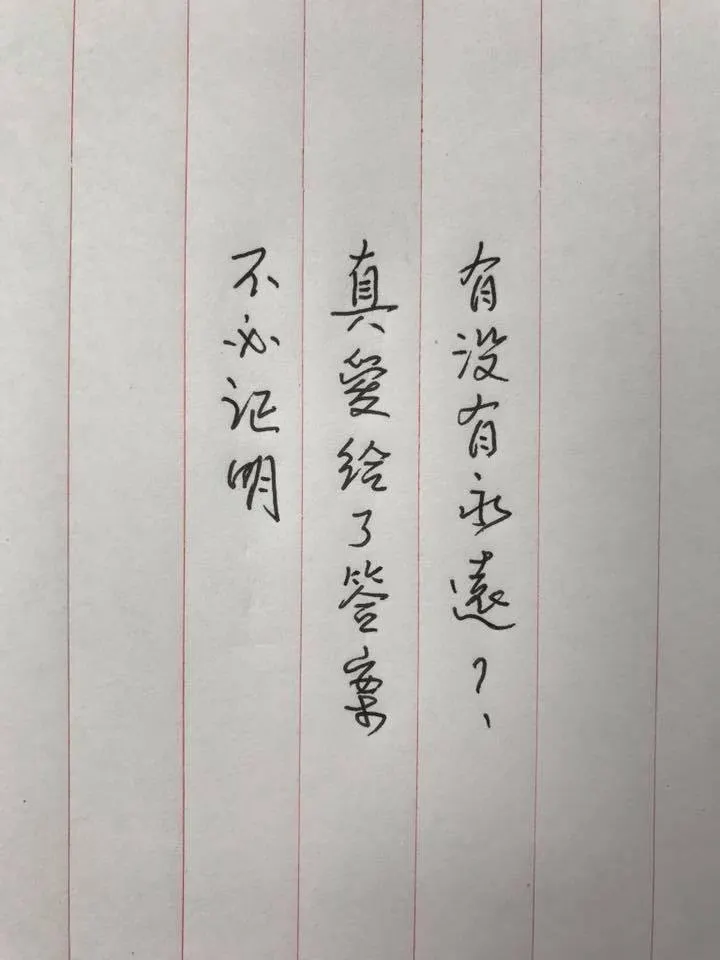 有没有永遠？
真愛給了答案
不必证明